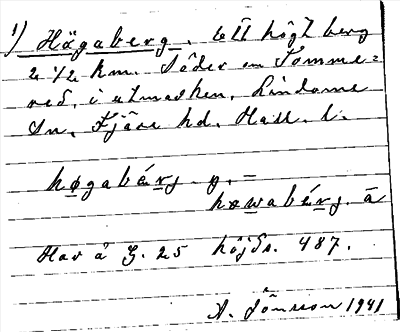 1) Högaberg. Ett högt berg
2 1/2 km. Söder om Tomme=
red, i utmarken, Lindome
Sn, Fjäre hd, Hall. l.
høgabérj. y. –
høwabérj. ä
Hav å G. 25 höjds. 487.
A. Jönsson 1941